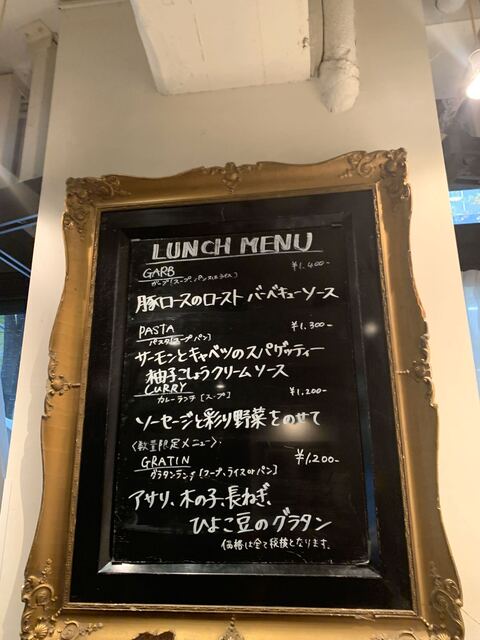 LUNCH MENU
GARB ¥1.400-
ガーブ[スープ、パン又はライス]
豚ロースのロースト バーベキューソース
PASTA ¥1.300-
パスタ[スープ パン]
サーモンとキャベツのスパゲッティー
柚子こしょうクリームソース
CURRY ¥1.200-
カレーランチ[スープ]
ソーセージと彩り野菜をのせて
〈数量限定メニュー〉
GRATIN ¥1,200-
グラタンランチ[スープ、ライスorパン]
アサリ、木の子、長ねぎ、
ひよこ豆のグラタン
価格は全て税抜となります。